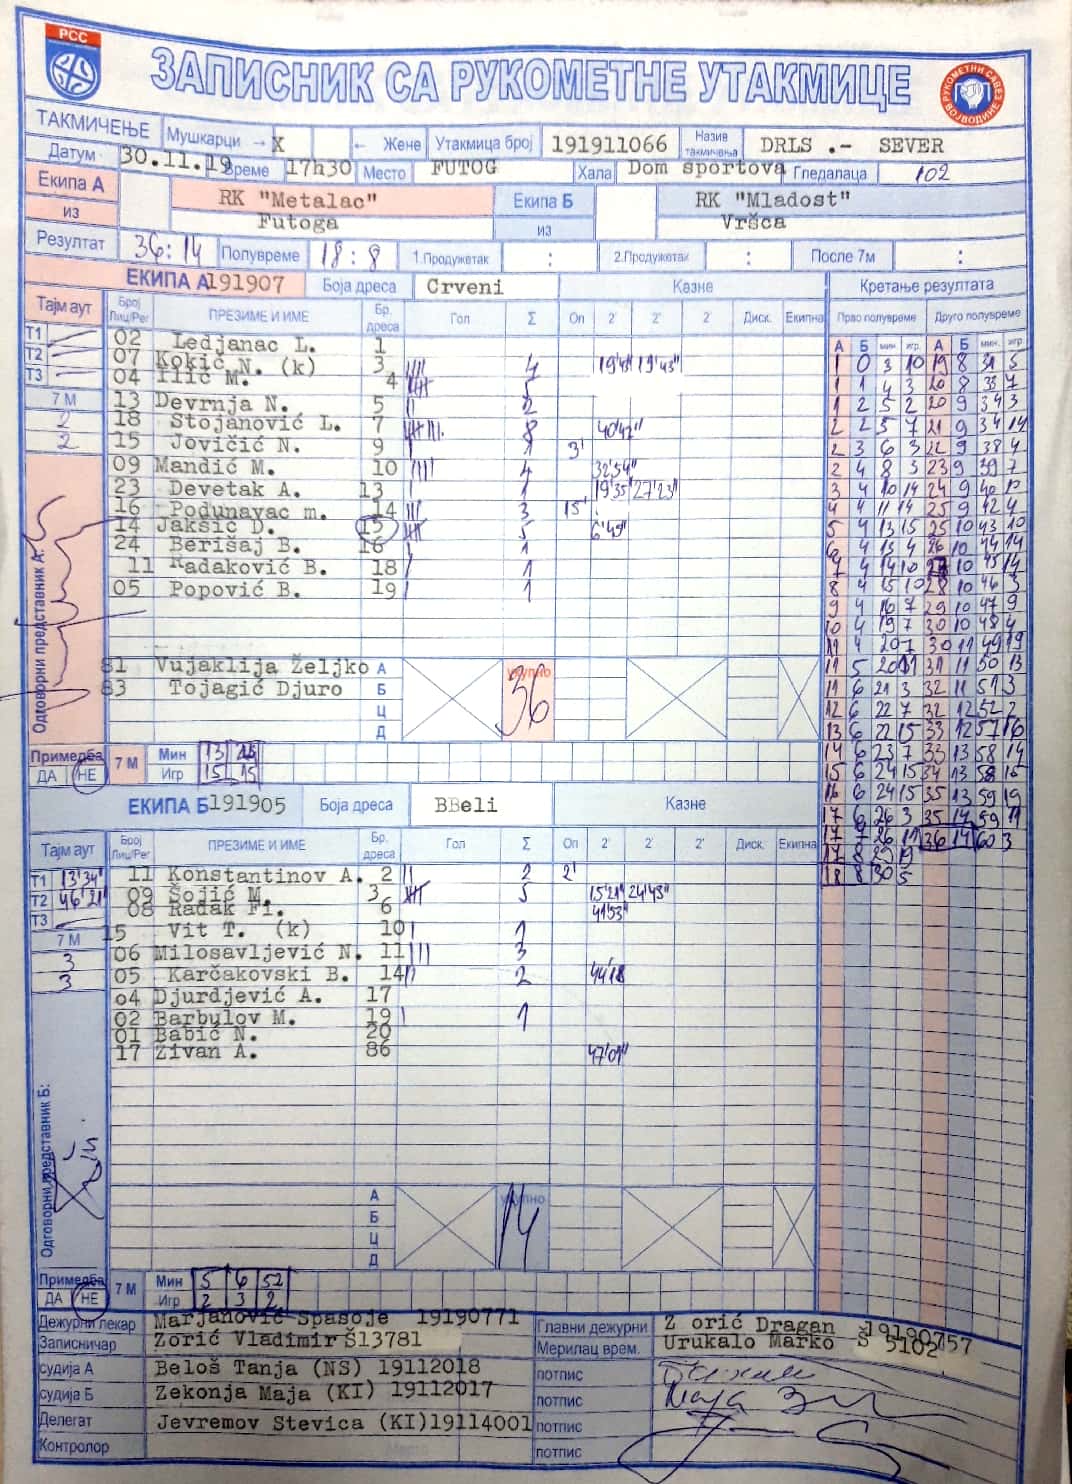 РСС
ЗАПИСНИК СА РУКОМЕТНЕ УТАКМИЦЕ
РУКОМЕТНИ САВЕЗ ВОЈВОДИНЕ
ТАКМИЧЕЊЕ Мушкарци → X ← Жене Утакмица број 191911066 Назив такмичења DRLS .- SEVER
Датум 30.11.19 Време 17h30 Место FUTOG Хала Dom sportova Гледалаца 102
Екипа А RK "Metalac" Екипа Б RK "Mladost"
из Futoga из Vršca
Резултат 36:14 Полувреме 18:8 1.Продужетак : 2.Продужетак : После 7м :
ЕКИПА А 191907 Боја дреса Crveni Казне Кретање резултата
Тајм аут Број Лиц/Рег ПРЕЗИМЕ И ИМЕ Бр. дреса Гол Σ Оп 2' 2' 2' Диск. Екипна Прво полувреме Друго полувреме
А Б мин. игр. А Б мин. игр.
T1 02 Ledjanac L. 1
T2 07 Kokič N. (k) 3 4 19'43" 19'43"
T3 04 Ilić M. 4 5
7 М 13 Devrnja N. 5 2
2 18 Stojanović L. 7 8 40'42"
2 15 Jovičić N. 9 1 3'
09 Mandić M. 10 4 32'54"
23 Devetak A. 13 1 19'35" 27'23"
16 Podunavac m. 14 3 15'
14 Jakšić D. 15 5 6'45"
24 Berišaj B. 16 1
11 Radaković B. 18 1
05 Popović B. 19 1
Одговорни представник А:
81 Vujaklija Željko А укупно
83 Tojagić Djuro Б 36
Ц
Д
Примедба ДА НЕ 7 М Мин 13
Игр 15 15
1 0 3 10 19 8 31 5
1 1 4 3 20 8 33 7
1 2 5 2 20 9 34 3
2 2 5 7 21 9 34 14
2 3 6 3 22 9 38 4
2 4 8 3 23 9 39 7
3 4 10 14 24 9 40 10
4 4 11 14 25 9 42 4
5 4 13 15 25 10 43 10
6 4 13 4 26 10 44 14
7 4 14 10 27 10 45 14
8 4 15 10 28 10 46 3
9 4 16 7 29 10 47 9
10 4 19 7 30 10 48 4
11 4 20 7 30 11 49 19
11 5 20 11 31 11 50 13
11 6 21 3 32 11 51 3
12 6 22 7 32 12 52 2
13 6 22 15 33 12 57 16
14 6 23 7 33 13 58 14
15 6 24 15 34 13 58 16
16 6 24 15 35 13 59 19
17 6 26 3 35 14 59 11
17 7 26 11 36 14 60 3
17 8 29 19
18 8 30 5
ЕКИПА Б 191905 Боја дреса BBeli Казне
Тајм аут Број Лиц/Рег ПРЕЗИМЕ И ИМЕ Бр. дреса Гол Σ Оп 2' 2' 2' Диск. Екипна
T1 13'34" 11 Konstantinov A. 2 2 2'
T2 46'21" 09 Šojić M. 3 5 15'21" 24'43"
T3 08 Radak Fi. 6 41'53"
7 М 15 Vit T. (k) 10 1
3 06 Milosavljević N. 11 3
3 05 Karčakovski B. 14 2 44'18
04 Djurdjević A. 17
02 Barbulov M. 19 1
01 Babić N. 20
17 Živan A. 86 47'01"
Одговорни представник Б:
А укупно
Б 14
Ц
Д
Примедба ДА НЕ 7 М Мин 5 6 52
Игр 2 3 2
Дежурни лекар Marjanović Spasoje 19190771 Главни дежурни Z orić Dragan 19190757
Записничар Zorić Vladimir Š13781 Мерилац врем. Urukalo Marko Š 5102
судија А Beloš Tanja (NS) 19112018 потпис
судија Б Zekonja Maja (KI) 19112017 потпис
Делегат Jevremov Stevica (KI)19114001 потпис
Контролор Место потпис